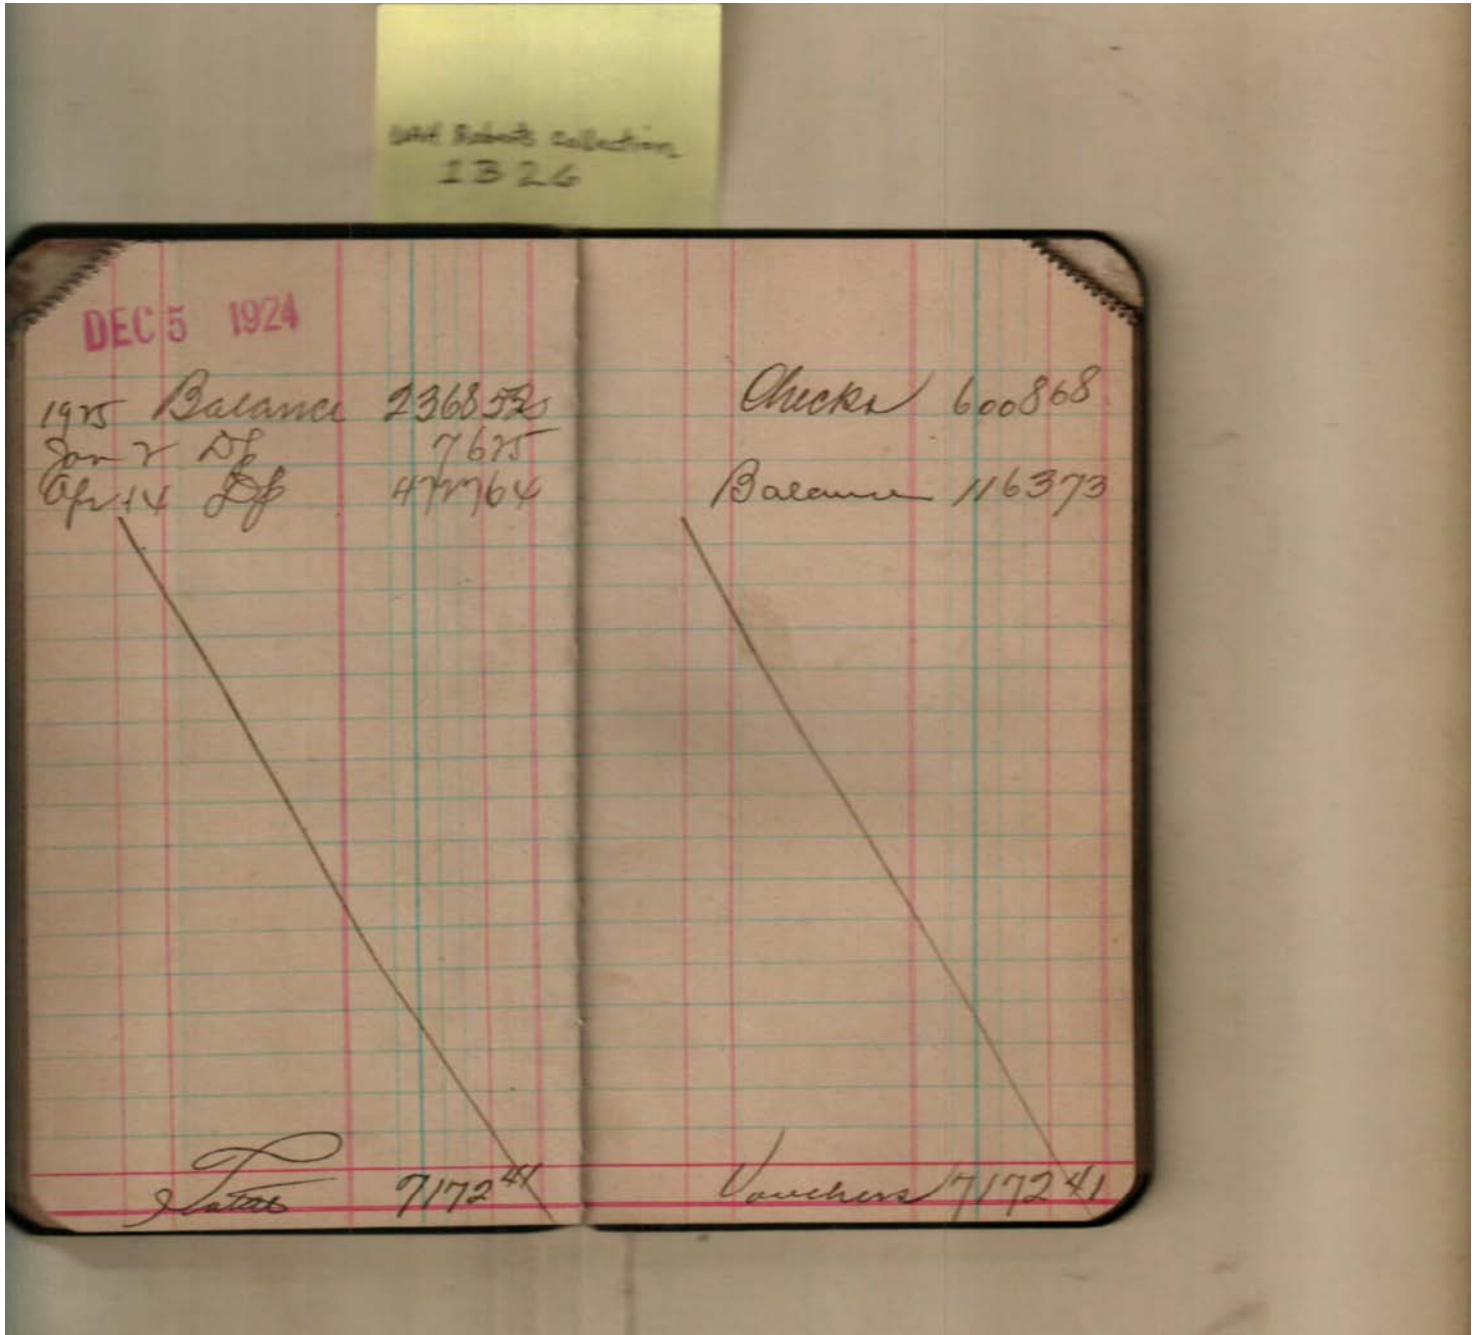 UAH Roberts collection
1B26
DEC 5 1924
1925 Balance 2368 52
Jan 2 Df 76 25
Apr 14 Df 4727 64
Total 7172 41
Checks 6008 68
Balance 1163 73
Vouchers 7172 41